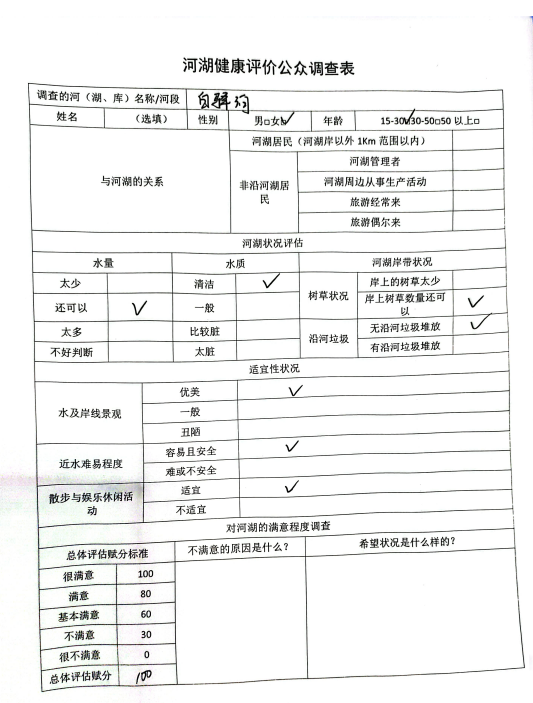 河湖健康评价公众调查表
调查的河（湖、库）名称/河段
姓名 （选填） 性别 男□女☑ 年龄 15-30☑30-50□50 以上□
与河湖的关系
河湖居民（河湖岸以外 1Km 范围以内）
非沿河湖居民
河湖管理者
河湖周边从事生产活动
旅游经常来
旅游偶尔来
河湖状况评估
水量 水质 河湖岸带状况
太少 清洁 ✓ 树草状况 岸上的树草太少
还可以 ✓ 一般 岸上树草数量还可以 ✓
太多 比较脏 沿河垃圾 无沿河垃圾堆放 ✓
不好判断 太脏 有沿河垃圾堆放
适宜性状况
水及岸线景观 优美 ✓
一般
丑陋
近水难易程度 容易且安全 ✓
难或不安全
散步与娱乐休闲活动 适宜 ✓
不适宜
对河湖的满意程度调查
总体评估赋分标准 不满意的原因是什么？ 希望状况是什么样的？
很满意 100
满意 80
基本满意 60
不满意 30
很不满意 0
总体评估赋分 100